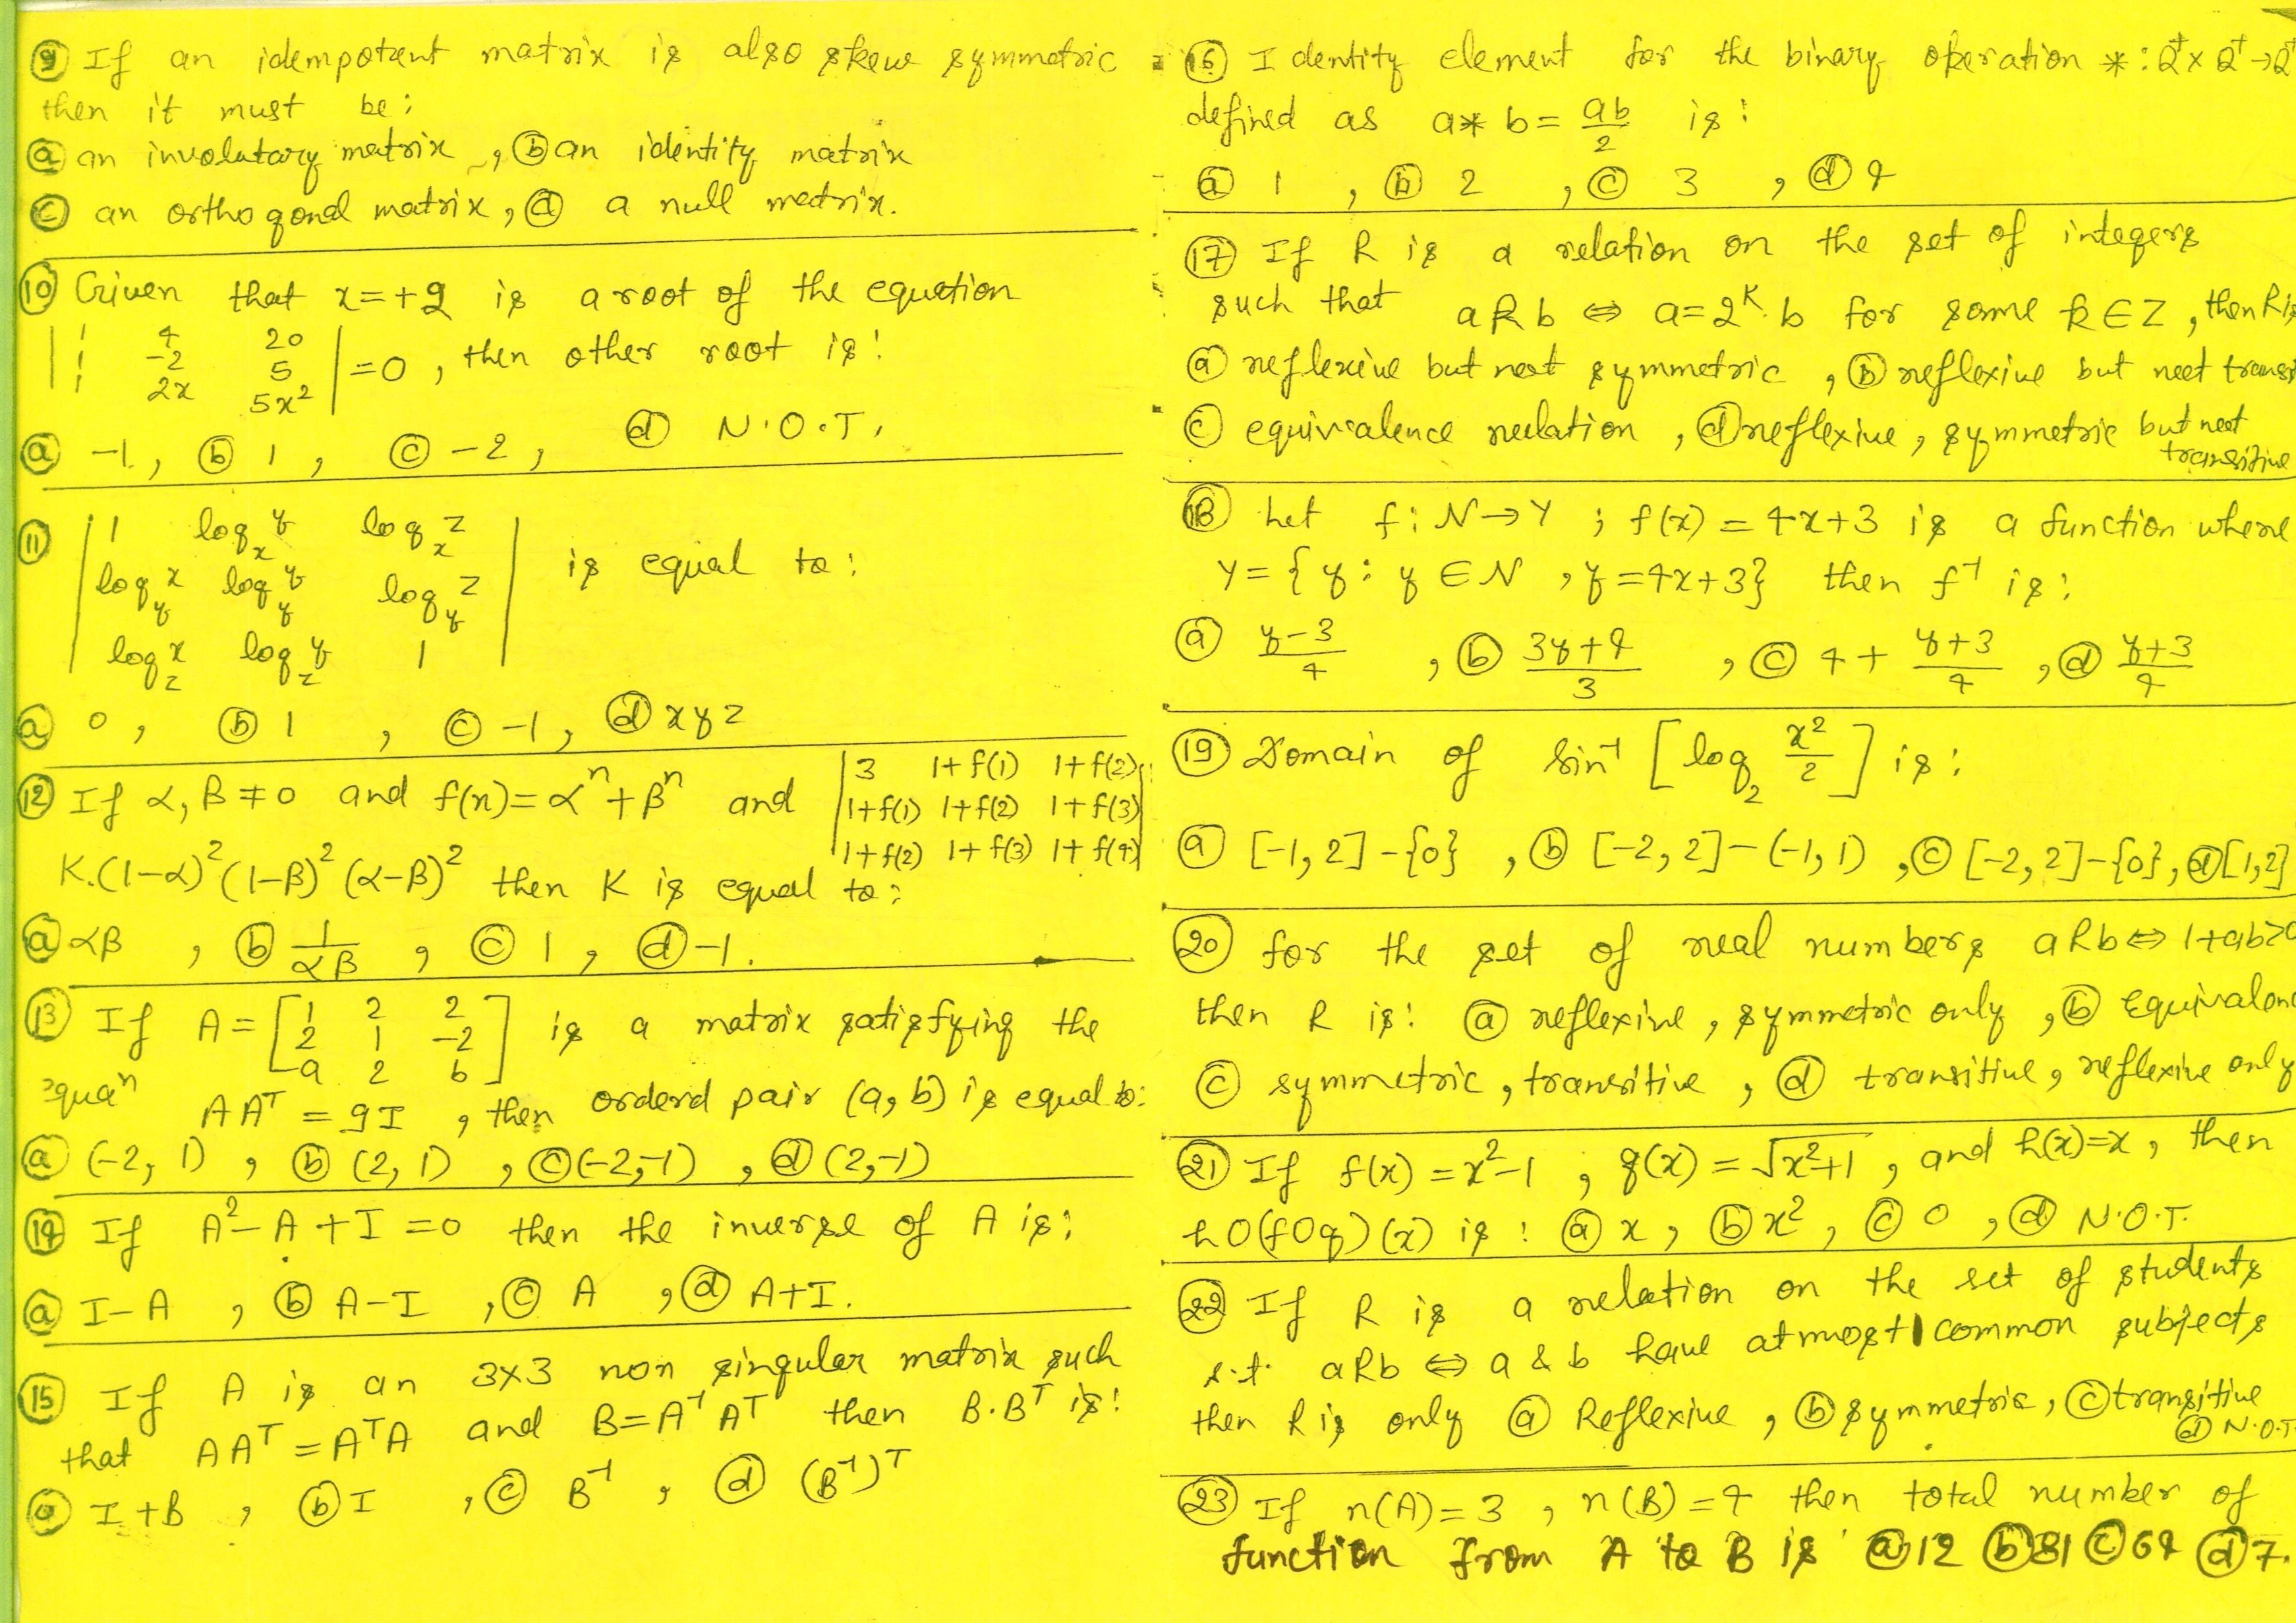 ⑨ If an idempotent matrix is also skew symmetric
then it must be:
ⓐ an involutary matrix, ⓑ an identity matrix
ⓒ an orthogonal matrix, ⓓ a null matrix.
⑩ Given that x=+2 is a root of the equation
| 1 4 20 |
| 1 -2 5 | =0, then other root is:
| 1 2x 5x² |
ⓐ -1, ⓑ 1, ⓒ -2, ⓓ N.O.T.
⑪ | 1 log_x y log_x z |
| log_y x log_y y log_y z | is equal to:
| log_z x log_z y 1 |
ⓐ 0, ⓑ 1, ⓒ -1, ⓓ xyz
⑫ If α, β ≠ 0 and f(n)=αⁿ+βⁿ and | 3 1+f(1) 1+f(2) |
| 1+f(1) 1+f(2) 1+f(3) |
| 1+f(2) 1+f(3) 1+f(4) |
K.(1-α)²(1-β)²(α-β)² then K is equal to:
ⓐ αβ, ⓑ 1/αβ, ⓒ 1, ⓓ -1.
⑬ If A = [ 1 2 2 ]
[ 2 1 -2 ] is a matrix satisfying the
[ a 2 b ]
equaⁿ AAᵀ = 9I, then orderd pair (a, b) is equal to:
ⓐ (-2, 1), ⓑ (2, 1), ⓒ (-2, -1), ⓓ (2, -1)
⑭ If A² - A + I = 0 then the inverse of A is:
ⓐ I-A, ⓑ A-I, ⓒ A, ⓓ A+I.
⑮ If A is an 3x3 non singular matrix such
that AAᵀ = AᵀA and B=A⁻¹Aᵀ then B.Bᵀ is:
ⓐ I+B, ⓑ I, ⓒ B⁻¹, ⓓ (B⁻¹)ᵀ
⑯ Identity element for the binary operation *: Q⁺ x Q⁺ → Q⁺
defined as a*b = ab/2 is:
ⓐ 1, ⓑ 2, ⓒ 3, ⓓ 4
⑰ If R is a relation on the set of integers
such that aRb ⇔ a=2ᴷ.b for some k∈Z, then R is
ⓐ reflexive but not symmetric, ⓑ reflexive but not transi
ⓒ equivalence relation, ⓓ reflexive, symmetric but not
transitive
⑱ Let f: N→Y; f(x) = 4x+3 is a function where
Y={y: y∈N, y=4x+3} then f⁻¹ is:
ⓐ (y-3)/4, ⓑ (3y+4)/3, ⓒ 4+(y+3)/4, ⓓ (y+3)/4
⑲ Domain of sin⁻¹ [log₂ x²/2] is:
ⓐ [-1, 2]-{0}, ⓑ [-2, 2]-(-1, 1), ⓒ [-2, 2]-{0}, ⓓ [1, 2]
⑳ for the set of real numbers aRb ⇔ 1+ab>0
then R is: ⓐ reflexive, symmetric only, ⓑ Equivalenc
ⓒ symmetric, transitive, ⓓ transitive, reflexive only
㉑ If f(x) = x²-1, g(x) = √(x²+1), and h(x)=x, then
hO(fOg)(x) is: ⓐ x, ⓑ x², ⓒ 0, ⓓ N.O.T.
㉒ If R is a relation on the set of students
s.t. aRb ⇔ a & b have atmost 1 common subjects
then R is only ⓐ Reflexive, ⓑ symmetric, ⓒ transitive
ⓓ N.O.T.
㉓ If n(A)=3, n(B)=4 then total number of
function from A to B is ⓐ 12 ⓑ 81 ⓒ 64 ⓓ 7.